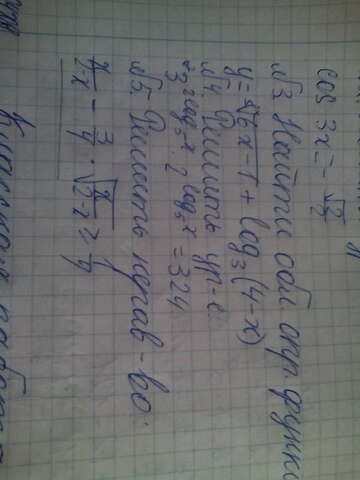 cos 3x = - √2/2
№3 Найти обл. опр. функ
y = √6x-1 + log₃(4-x)
№4 Решить ур-е:
3^{2log₅x} · 2^{log₅x} = 324.
№5. Решить нерав-во:
- 3/4 · √ ≥ 1/4
Контрольная работа